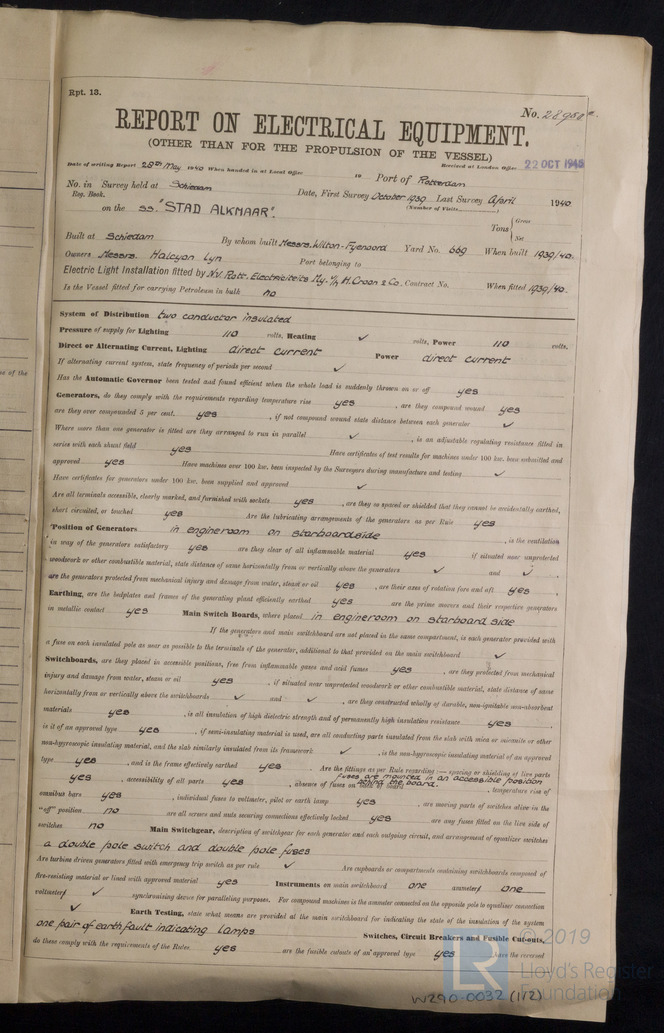 Rpt. 13.
No. 28950
REPORT ON ELECTRICAL EQUIPMENT.
(OTHER THAN FOR THE PROPULSION OF THE VESSEL)
Received at London Office 22 OCT 1945
Date of writing Report 28th May 1940 When handed in at Local Office 19 Port of Rotterdam
No. in Reg. Book. Survey held at Schiedam Date, First Survey October 1939 Last Survey April 1940
(Number of Visits
on the ss. "STAD ALKMAAR". Tons { Gross Net
Built at Schiedam By whom built Messrs. Wilton-Fyenoord Yard No. 669 When built 1939/40.
Owners Messrs. Halcyon Lyn Port belonging to
Electric Light Installation fitted by N.V. Rott. Electriciteits My. v/h H. Croon & Co. Contract No. When fitted 1939/40.
Is the Vessel fitted for carrying Petroleum in bulk no
System of Distribution two conductor insulated
Pressure of supply for Lighting 110 volts, Heating ✓ volts, Power 110 volts.
Direct or Alternating Current, Lighting direct current Power direct current
If alternating current system, state frequency of periods per second ✓
Has the Automatic Governor been tested and found efficient when the whole load is suddenly thrown on or off yes
Generators, do they comply with the requirements regarding temperature rise yes, are they compound wound yes
are they over compounded 5 per cent. yes, if not compound wound state distance between each generator ✓
Where more than one generator is fitted are they arranged to run in parallel ✓, is an adjustable regulating resistance fitted in
series with each shunt field yes Have certificates of test results for machines under 100 kw. been submitted and
approved yes Have machines over 100 kw. been inspected by the Surveyors during manufacture and testing ✓
Have certificates for generators under 100 kw. been supplied and approved ✓
Are all terminals accessible, clearly marked, and furnished with sockets yes, are they so spaced or shielded that they cannot be accidentally earthed,
short circuited, or touched yes Are the lubricating arrangements of the generators as per Rule yes
Position of Generators in engineroom on starboardside, is the ventilation
in way of the generators satisfactory yes are they clear of all inflammable material yes if situated near unprotected
woodwork or other combustible material, state distance of same horizontally from or vertically above the generators ✓ and ✓
are the generators protected from mechanical injury and damage from water, steam or oil yes, are their axes of rotation fore and aft yes
Earthing, are the bedplates and frames of the generating plant efficiently earthed yes are the prime movers and their respective generators
in metallic contact yes Main Switch Boards, where placed in engineroom on starboard side
If the generators and main switchboard are not placed in the same compartment, is each generator provided with
a fuse on each insulated pole as near as possible to the terminals of the generator, additional to that provided on the main switchboard ✓
Switchboards, are they placed in accessible positions, free from inflammable gases and acid fumes yes, are they protected from mechanical
injury and damage from water, steam or oil yes, if situated near unprotected woodwork or other combustible material, state distance of same
horizontally from or vertically above the switchboards ✓ and ✓, are they constructed wholly of durable, non-ignitable non-absorbent
materials yes, is all insulation of high dielectric strength and of permanently high insulation resistance yes
is it of an approved type yes, if semi-insulating material is used, are all conducting parts insulated from the slab with mica or micanite or other
non-hygroscopic insulating material, and the slab similarly insulated from its framework ✓, is the non-hygroscopic insulating material of an approved
type yes, and is the frame effectively earthed yes Are the fittings as per Rule regarding:— spacing or shielding of live parts
fuses are mounted in an accessible position
yes, accessibility of all parts yes, absence of fuses on back of board behind the board. temperature rise of
omnibus bars yes, individual fuses to voltmeter, pilot or earth lamp yes, are moving parts of switches alive in the
"off" position no are all screws and nuts securing connections effectively locked yes are any fuses fitted on the live side of
switches no Main Switchgear, description of switchgear for each generator and each outgoing circuit, and arrangement of equaliser switches
a double pole switch and double pole fuses
Are turbine driven generators fitted with emergency trip switch as per rule ✓ Are cupboards or compartments containing switchboards composed of
fire-resisting material or lined with approved material yes Instruments on main switchboard one ammeters one
voltmeters ✓ synchronising device for paralleling purposes. For compound machines is the ammeter connected on the opposite pole to equaliser connection
✓ Earth Testing, state what means are provided at the main switchboard for indicating the state of the insulation of the system
one pair of earth fault indicating lamps Switches, Circuit Breakers and Fusible Cut-outs,
do these comply with the requirements of the Rules yes are the fusible cutouts of an approved type yes have the reversed
© 2019
LR Lloyd's Register
Foundation
W290-0032 (1/2)
es of the